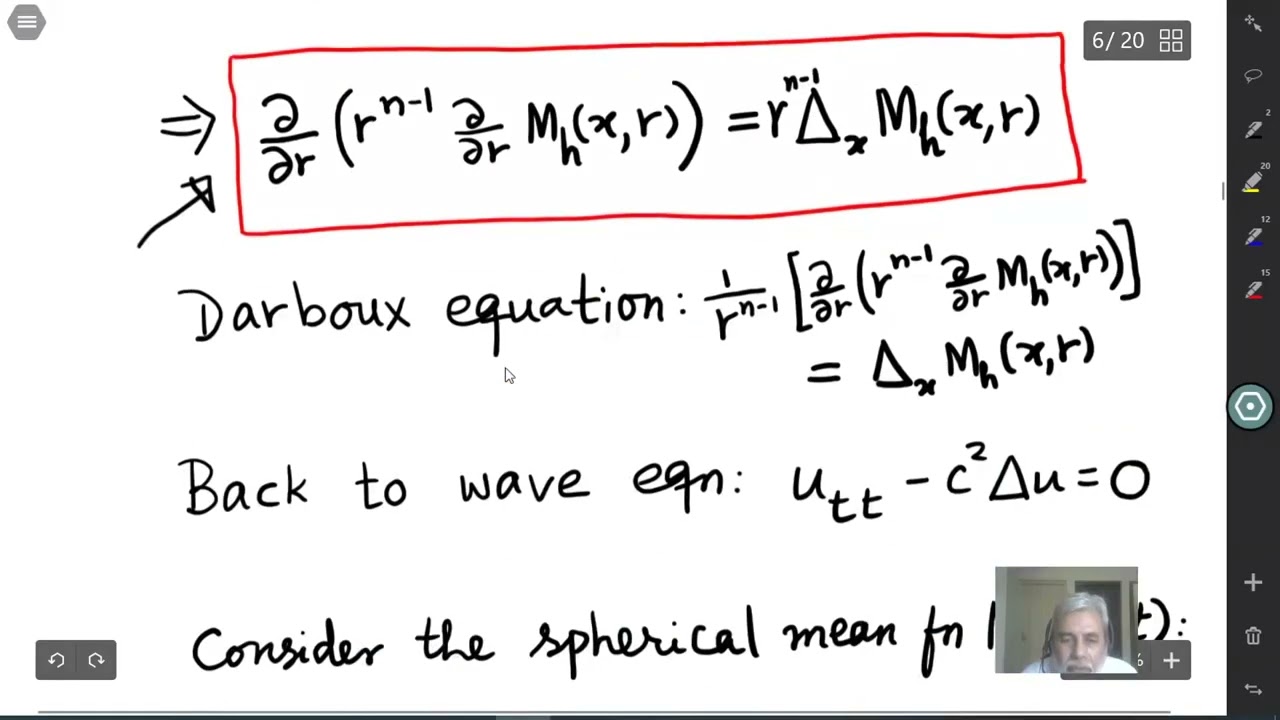 6/20
⇒ ∂/∂r (r^{n-1} ∂/∂r M_h(x,r)) = r^{n-1} Δ_x M_h(x,r)
Darboux equation: 1/r^{n-1} [∂/∂r (r^{n-1} ∂/∂r M_h(x,r))]
= Δ_x M_h(x,r)
Back to wave eqn: u_{tt} - c^2 Δu = 0
Consider the spherical mean fn t):
2
20
12
15
%